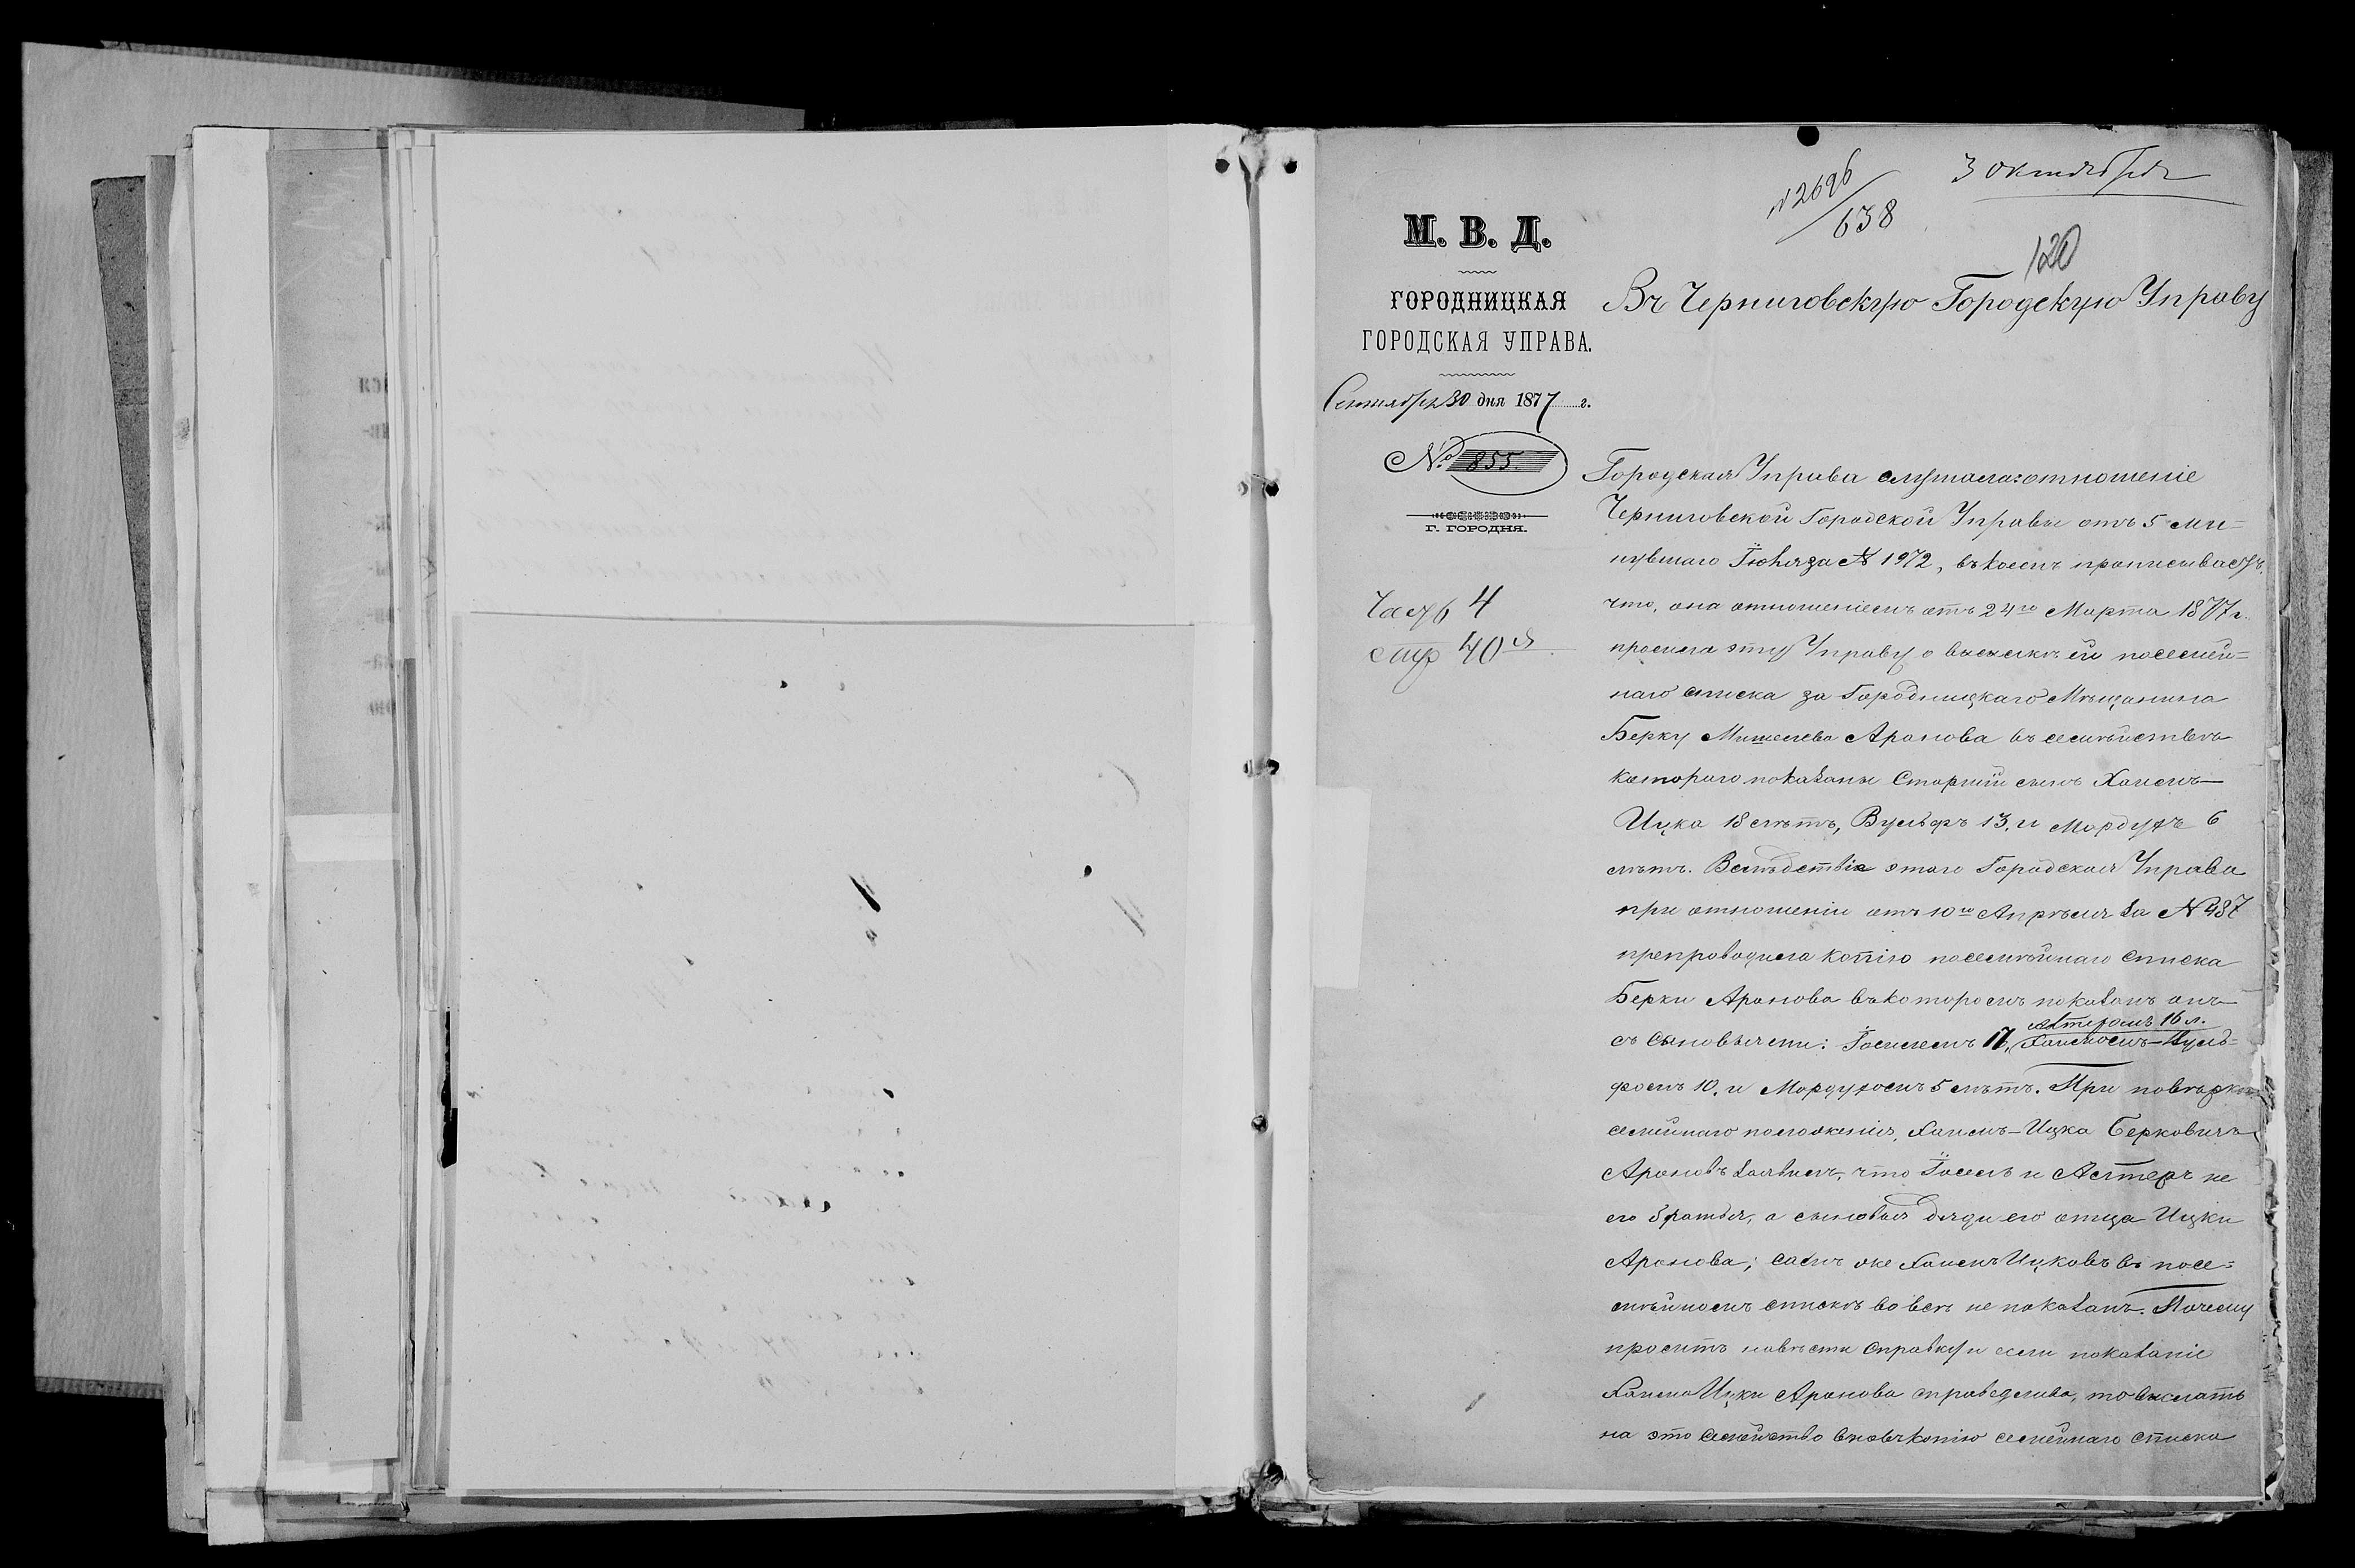 3 октября
№ 2696
638
120
М. В. Д.
ГОРОДНИЦКАЯ
ГОРОДСКАЯ УПРАВА.
Сентября 30 дня 1877 г.
№ 855
Г. ГОРОДНЯ.
Часть 4
стр 40
Въ Черниговскую Городскую Управу
Городская Управа слушала: отношеніе
Черниговской Городской Управы отъ 5 ми=
нувшаго за № 1972, въ коемъ прописываетъ
что, она отношеніемъ отъ 24го Марта 1877 г.
просила эту Управу о высылкѣ ей посемей=
наго списка за Городницкаго Мѣщанина
Берку Аронова въ семѣйствѣ
котораго показаны Старшій сынъ Хаимъ—
Ицка 18 лѣтъ, Вульфъ 13, и Мордухъ 6
лѣтъ. Вслѣдствіе этого Городская Управа
при отношеніи отъ 10го Апрѣля за № 487
препроводила копію посемѣйнаго списка
Берки Аронова въ которомъ показанъ онъ
съ сыновьями: Іоселемъ 17, Хаимомъ—Вуль=
Астеромъ 16 л.
фомъ 10, и Мордухомъ 5 лѣтъ. При повѣркѣ
семейнаго положенія, Хаимъ—Ицка Берковичъ
Ароновъ заявилъ, что Іосель и Астеръ не
его братья, а сыновья дяди его отца Ицки
Аронова; самъ же Хаимъ Ицковъ въ посе=
мѣйномъ спискѣ вовсѣ не показанъ. Почему
проситъ навѣсти справку и если показаніе
Хаима Ицки Аронова справедливо, то выслать
на это семейство вновь копію семейнаго списка